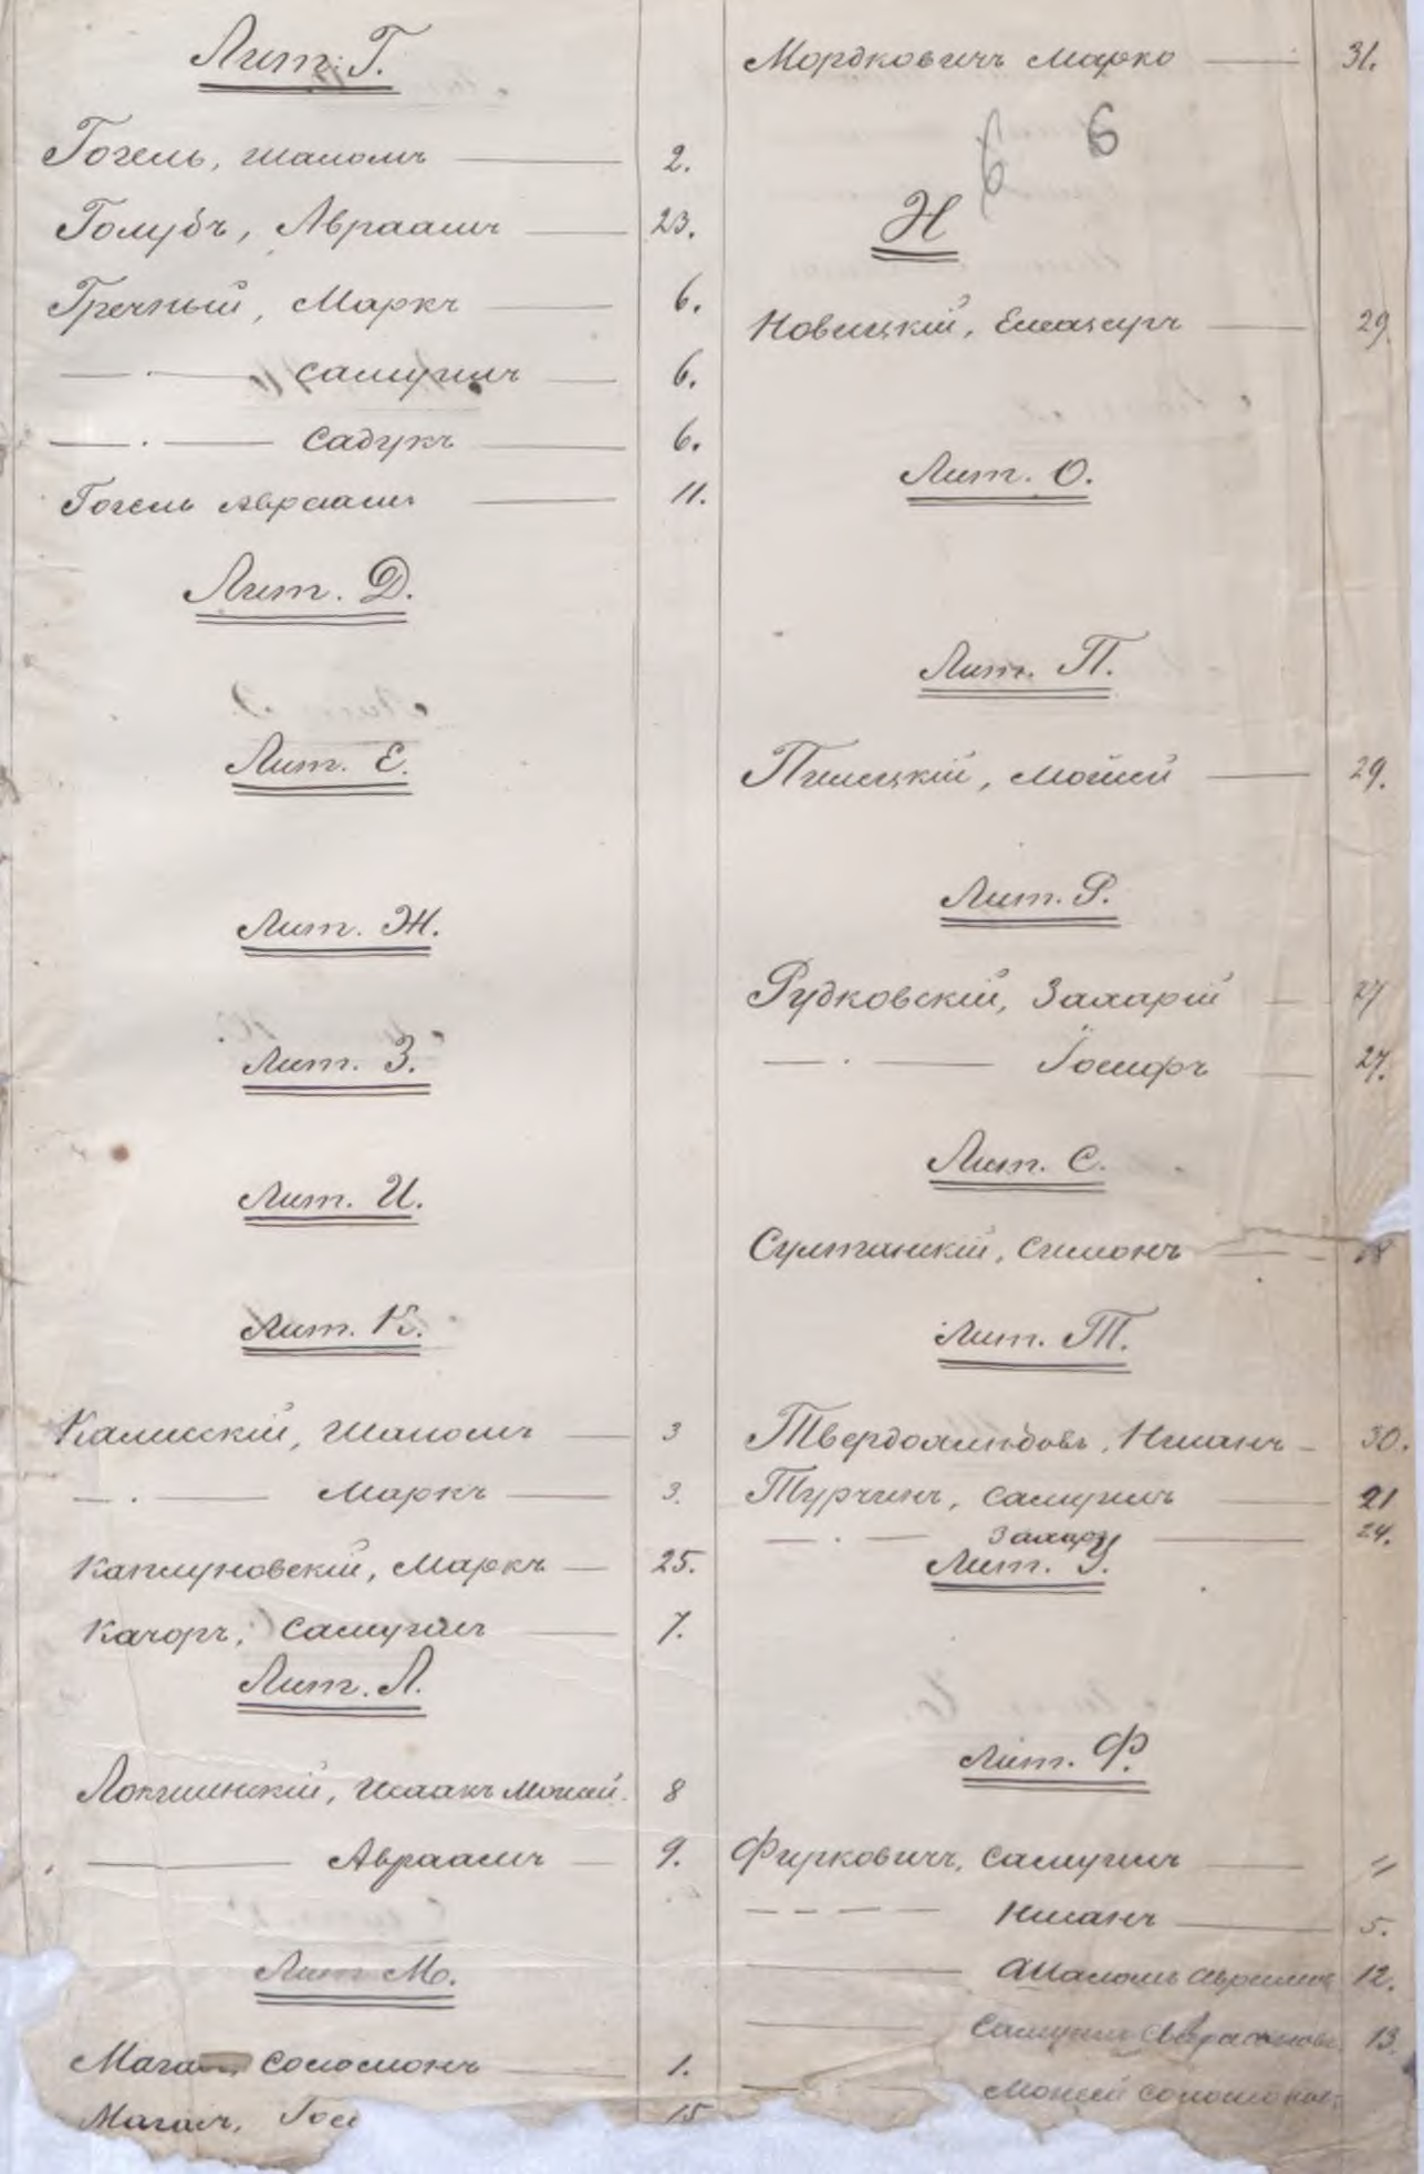 Лит. Г.
Гогель, Шаломъ 2.
Голубъ, Авраамъ 23.
Гречный, Маркъ 6.
— · — Самуилъ 6.
— · — Садукъ 6.
Гогель Авраамъ 11.
Лит. Д.
Лит. Е.
Лит. Ж.
Лит. З.
Лит. И.
Лит. К.
Калисскій, Шаломъ 3
— · — Маркъ 3.
Каплуновскій, Маркъ 25.
Качоръ, Самуилъ 7.
Лит. Л.
Локшинскій, Исаакъ Моисей. 8
— Авраамъ 9.
Лит М.
Соломонъ 1.
Магасъ, 15
Мордковичъ Марко 31.
6 6
Н
Новицкій, Елеазаръ 29.
Лит. О.
Лит. П.
Пилецкій, Моисей 29.
Лит. Р.
Рудковскій, Захарій 27
— · — Іосифъ 27.
Лит. С.
Султанскій, Симонъ
Лит. Т.
Твердохлѣбовъ, Илианъ 30.
Турчинъ, Самуилъ 21
— · — Захарій 24.
Лит. У.
Лит. Ф.
Фирковичъ, Самуилъ
— — — — Илианъ 5.
— Шаломъ 12.
— Самуилъ 13.
— Моисей